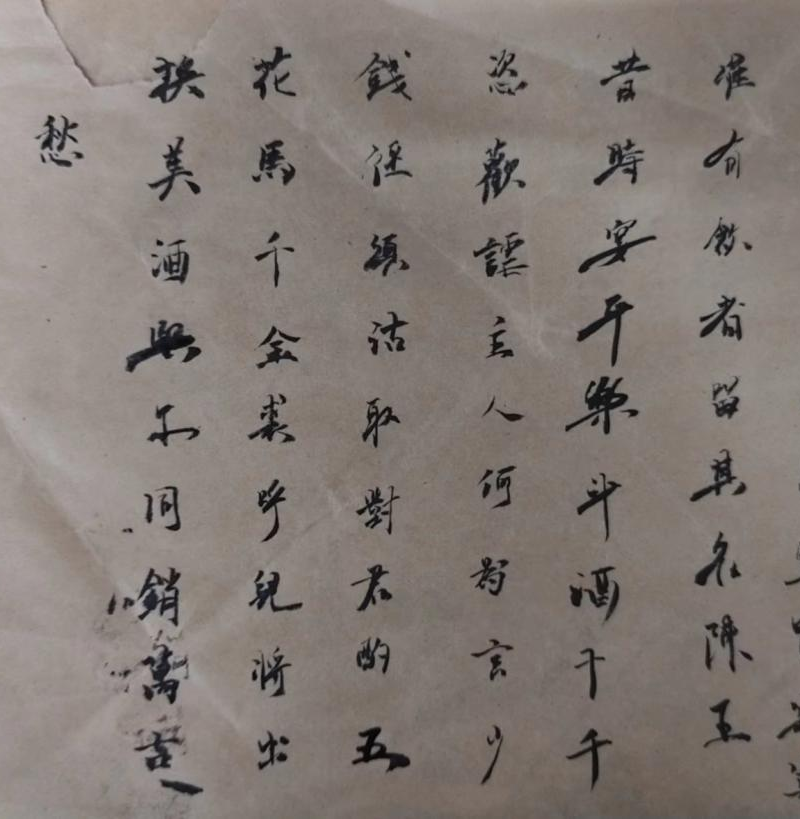 惟有飲者留其名陳王
昔時宴平樂斗酒十千
恣歡謔主人何為言少
錢徑須沽取對君酌五
花馬千金裘呼兒將出
換美酒與尔同銷萬古
愁